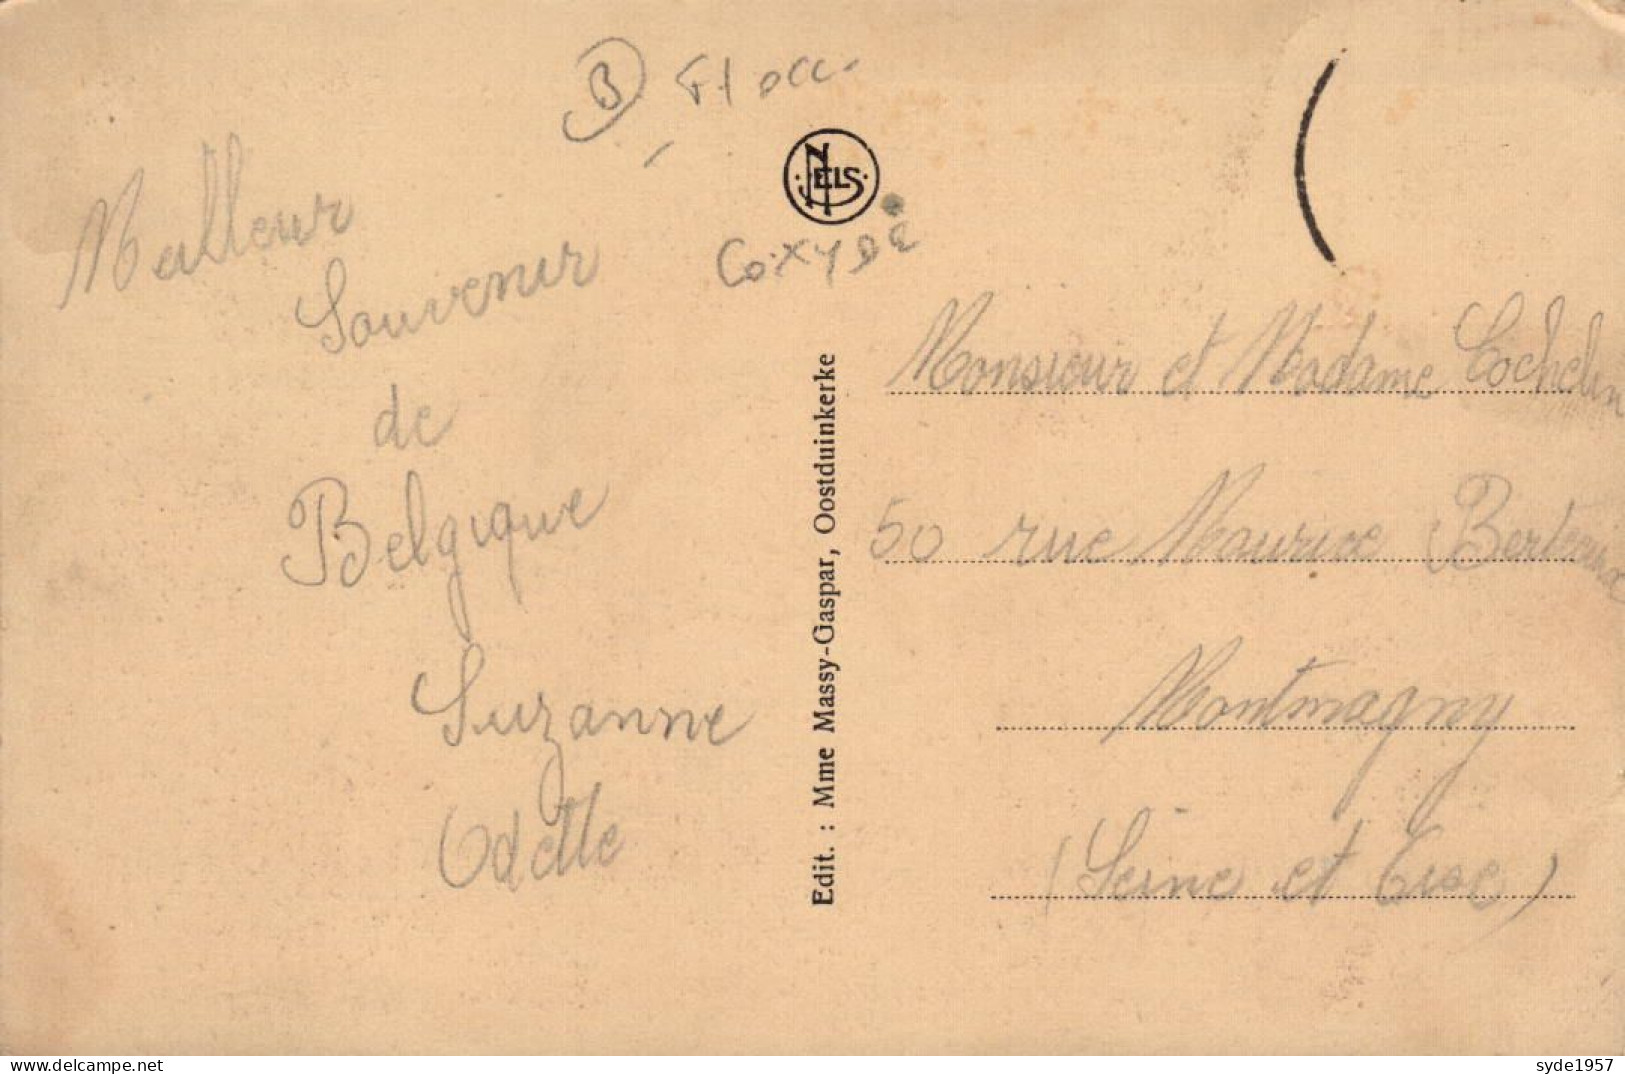 B Fl occ.
NELS
COXYDE
Meilleur
Souvenir
de
Belgique
Suzanne
Odette
Edit. : Mme Massy-Gaspar, Oostduinkerke
Monsieur et Madame Cochelin
50 rue Maurice Berteaux
Montmagny
(Seine et Oise)
www.delcampe.net
syde1957